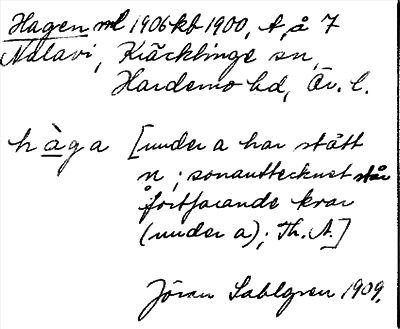 Hagen ml 1906 kb 1900, t, å 7
Nalavi, Kräcklinge sn,
Hardemo hd, Ör. l.
hàga [under a har stått
n; sonanttecknet står
fortfarande kvar
(under a); Th. A.]
Jöran Sahlgren 1909.